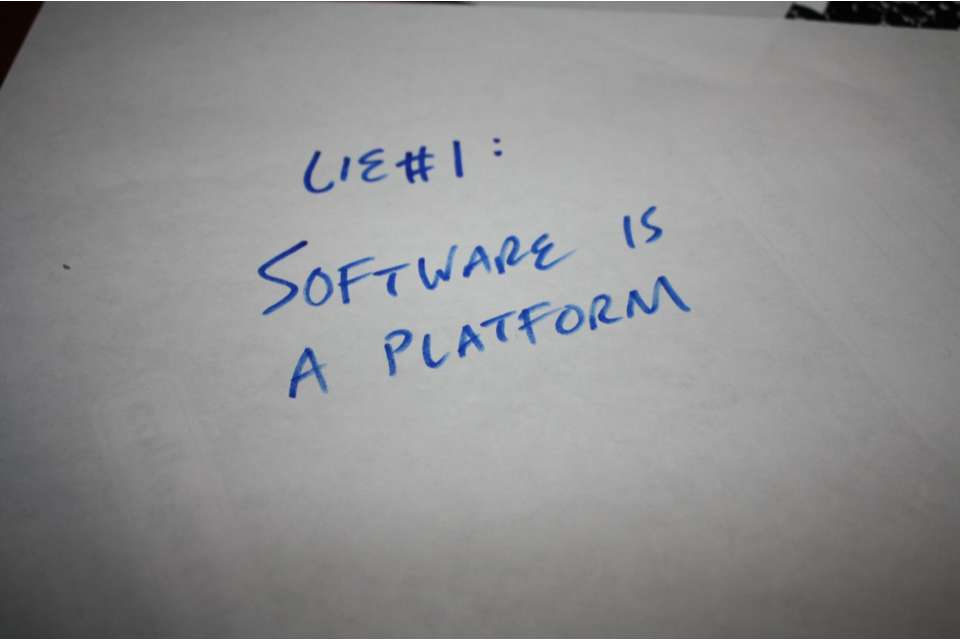 LIE#1:
SOFTWARE IS
A PLATFORM